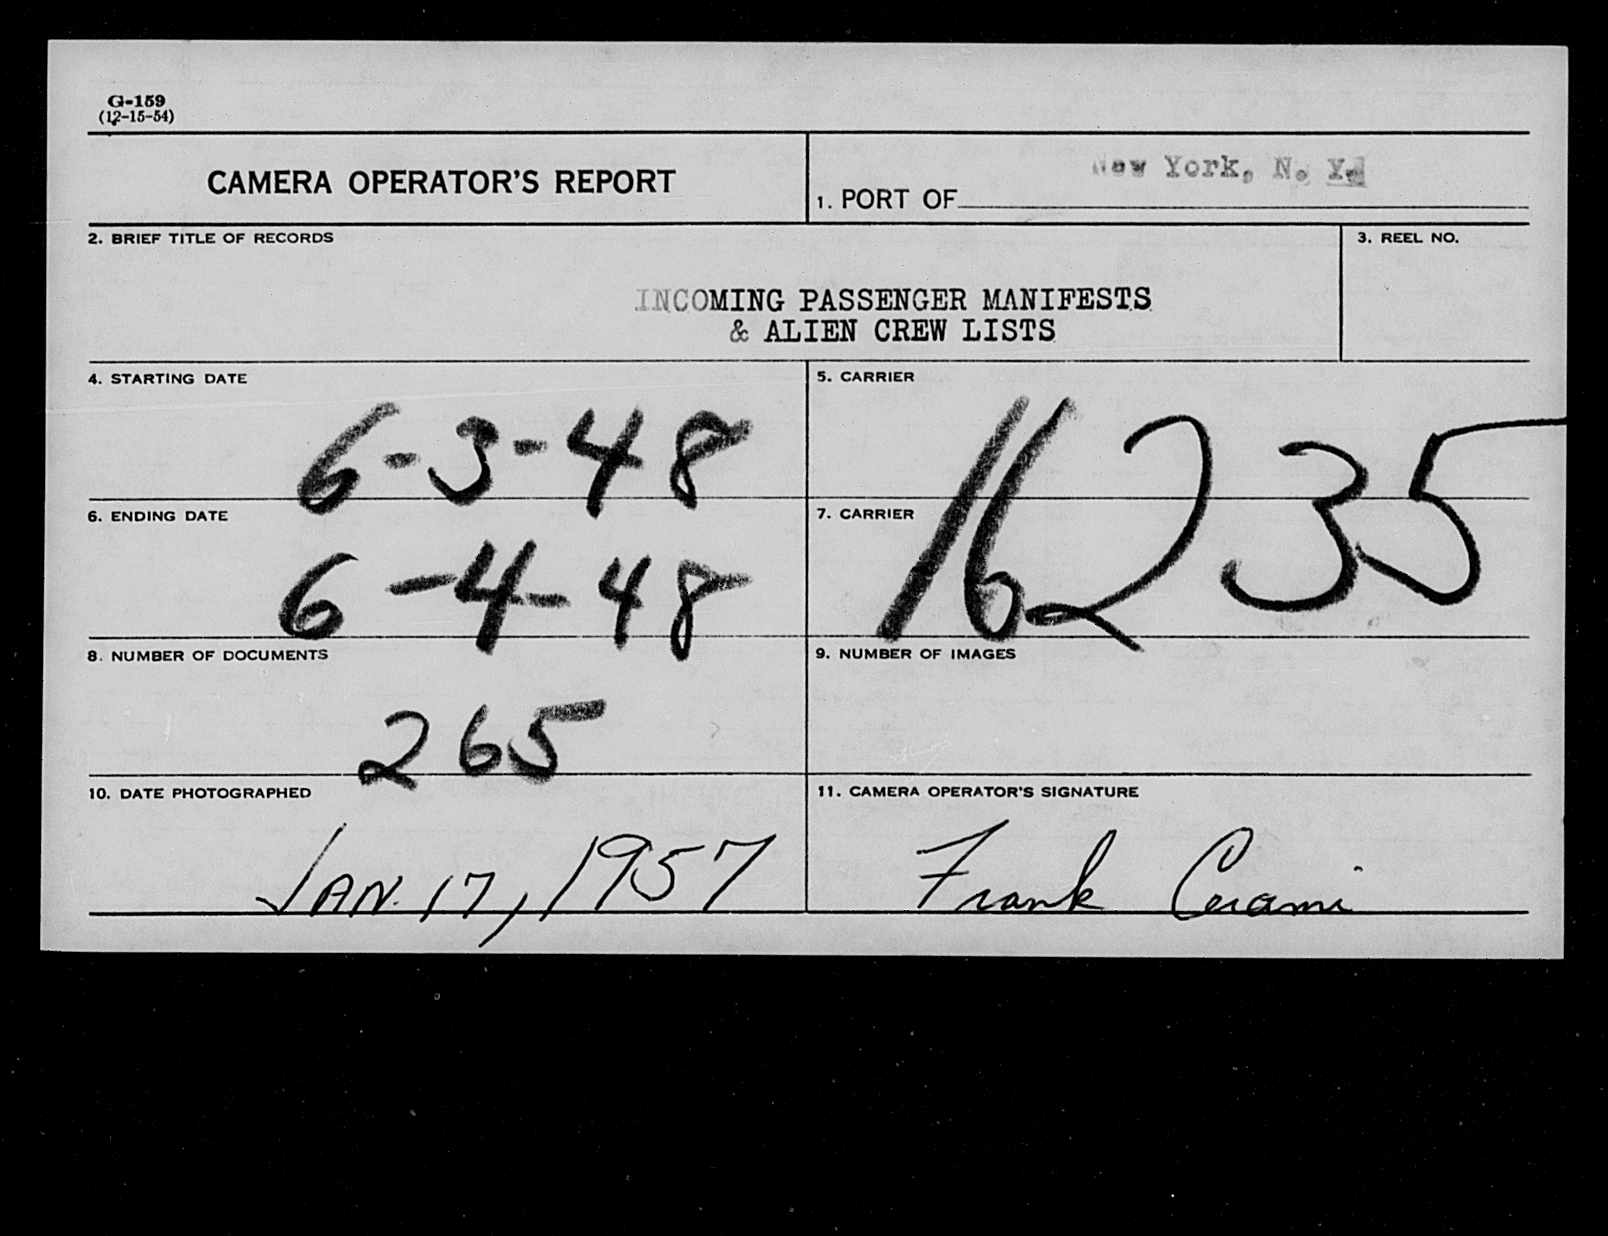 G-159
(12-15-54)
CAMERA OPERATOR'S REPORT
1. PORT OF New York, N. Y.
2. BRIEF TITLE OF RECORDS
3. REEL NO.
INCOMING PASSENGER MANIFESTS
& ALIEN CREW LISTS
4. STARTING DATE
6-3-48
5. CARRIER
16235
6. ENDING DATE
6-4-48
7. CARRIER
8. NUMBER OF DOCUMENTS
265
9. NUMBER OF IMAGES
10. DATE PHOTOGRAPHED
JAN. 17, 1957
11. CAMERA OPERATOR'S SIGNATURE
Frank Cerami